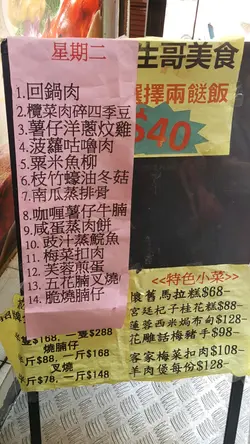 星期二
1.回鍋肉
2.欖菜肉碎四季豆
3.薯仔洋蔥炆雞
4.菠蘿咕嚕肉
5.粟米魚柳
6.枝竹蠔油冬菇
7.南瓜蒸排骨
8.咖喱薯仔牛腩
9.咸蛋蒸肉餅
10.豉汁蒸鯇魚
11.梅菜扣肉
12.芙蓉煎蛋
13.五花腩叉燒
14.脆燒腩仔
生哥美食
選擇兩餸飯
$40
<<特色小菜>>
懷舊馬拉糕$68-
宮廷杞子桂花糕$
蓮蓉西米焗布甸$128-
花雕話梅豬手$98-
客家梅菜扣肉$108-
羊肉煲每份$128-
$168, 一隻$288
燒腩仔
斤$88, 一斤$168
叉燒
斤$78, 一斤$148